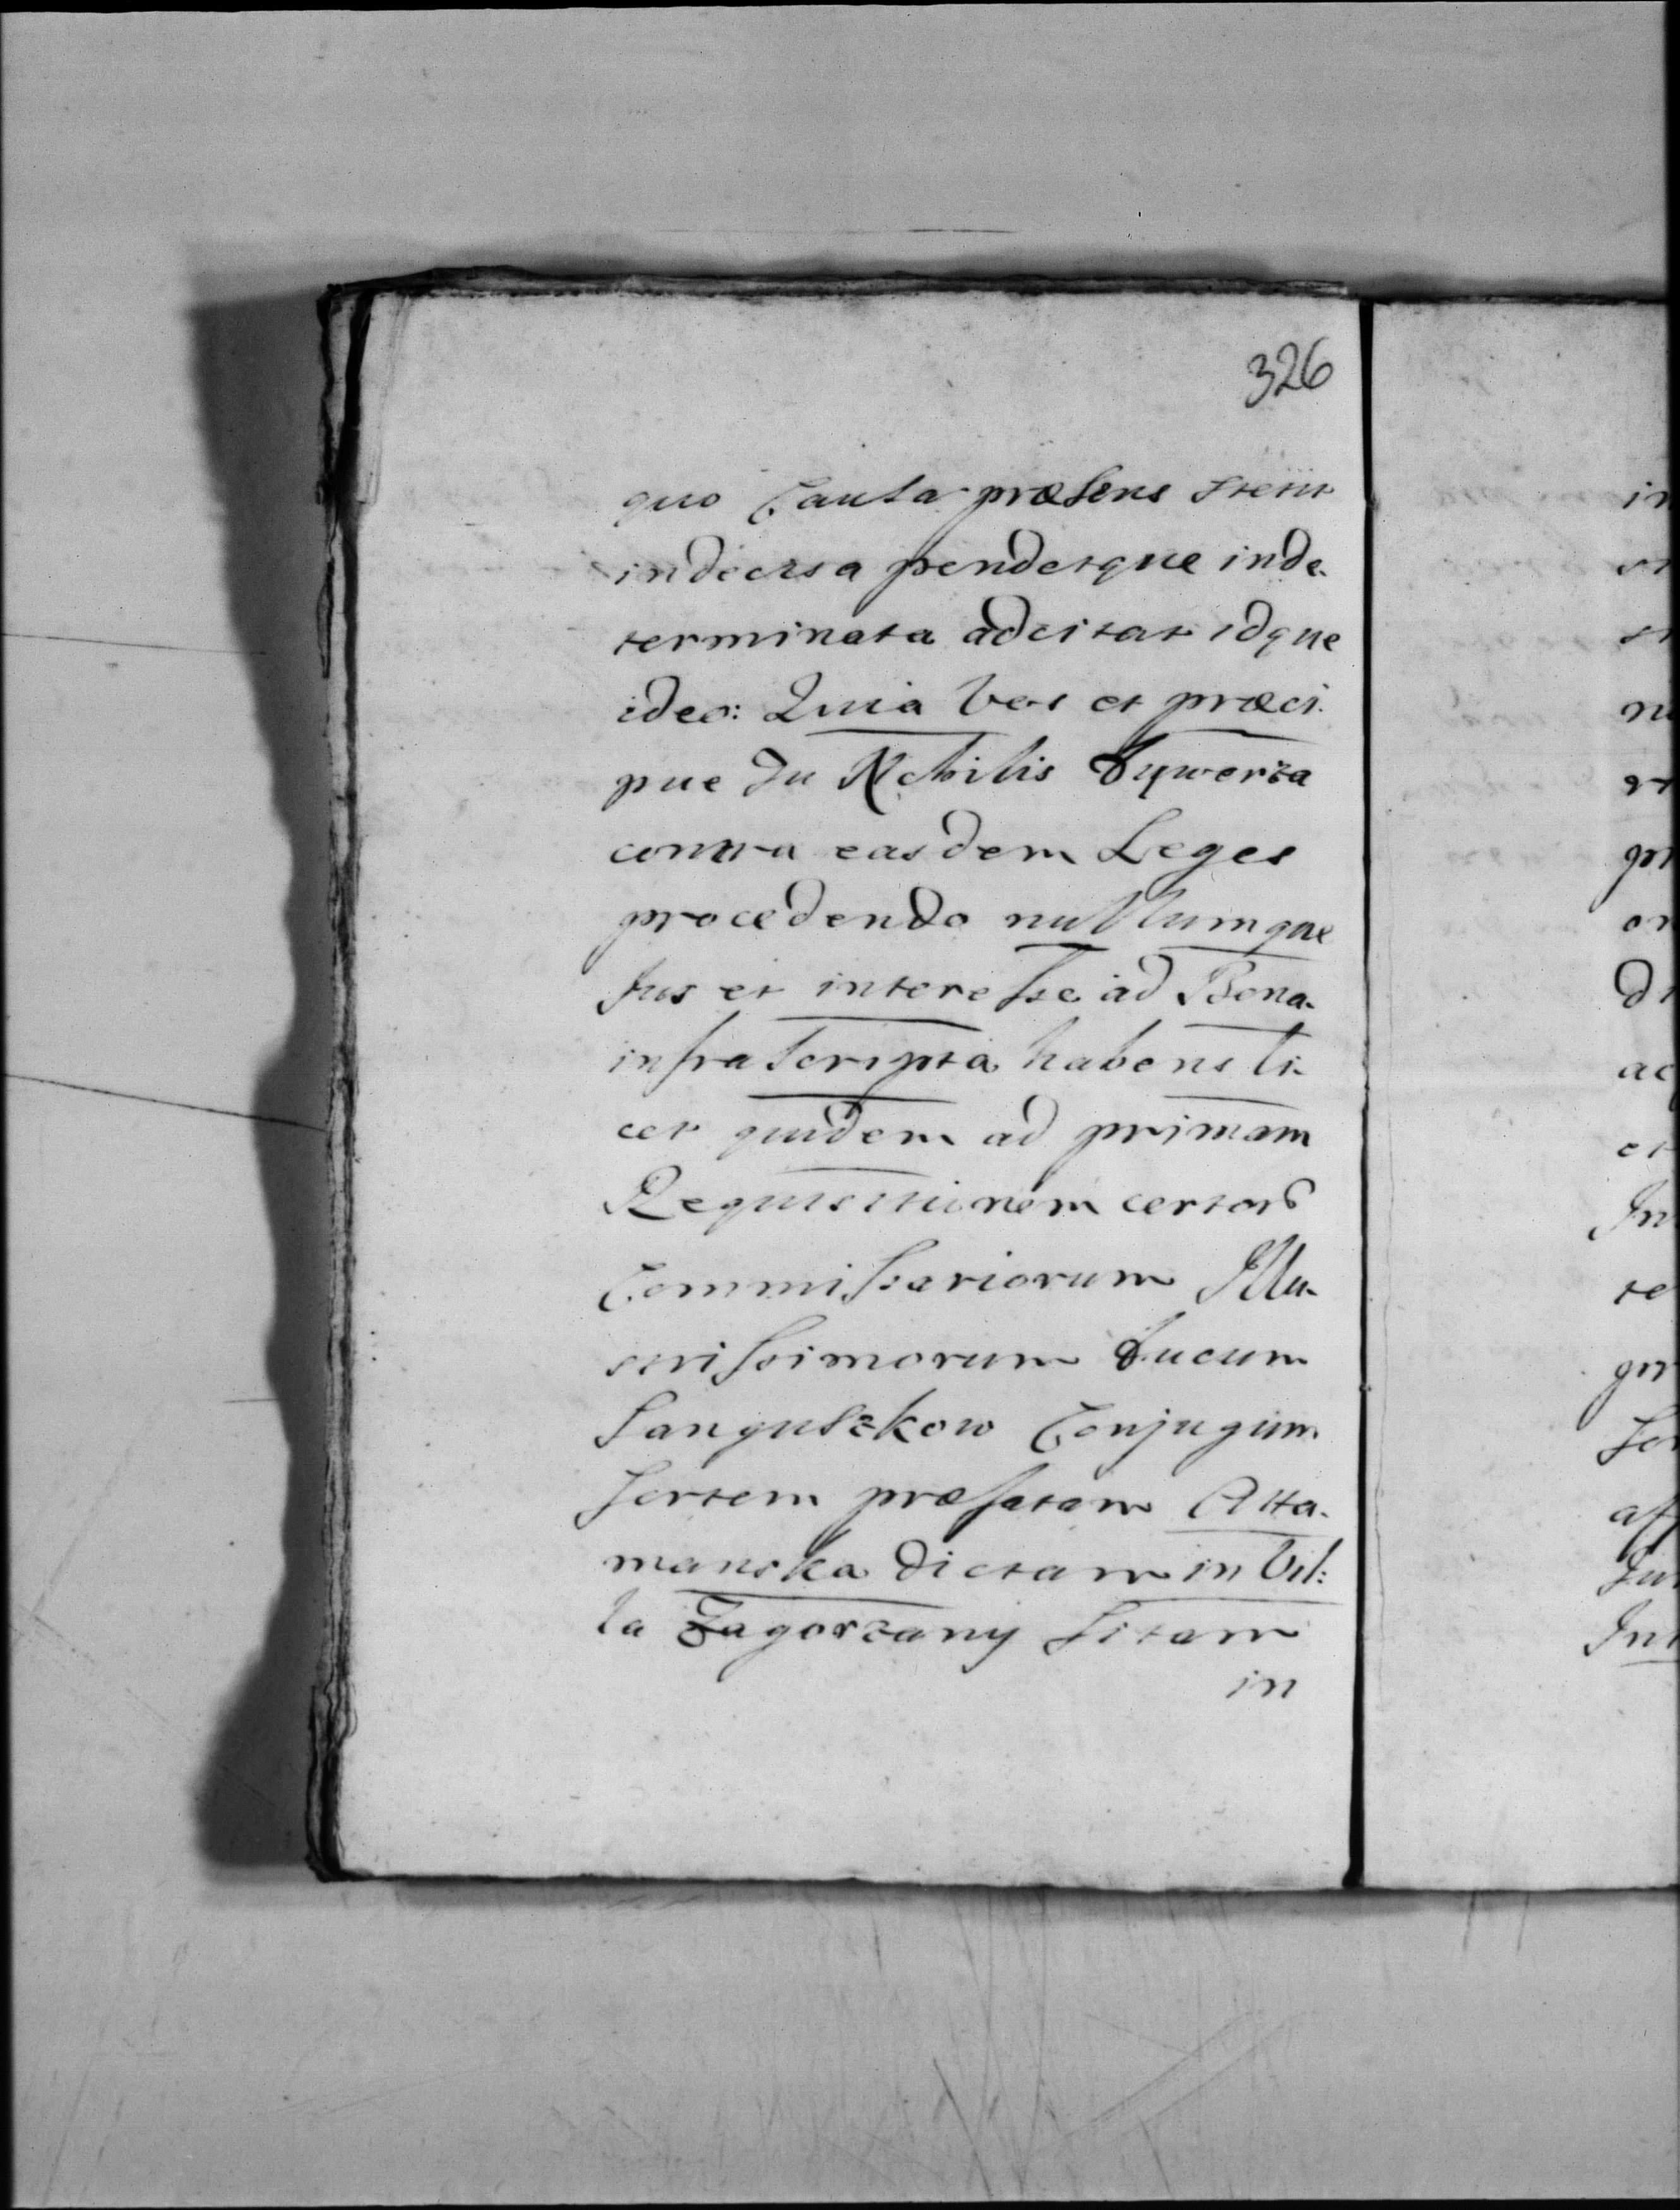 326
quo Causa præsens stetit
indecisa pendetque inde-
terminata adcitat idque
ideo: Quia Vos et præci-
pue Tu Nobilis Dywerza
contra easdem Leges
procedendo nullumque
Jus et interesse ad Bona
infrascripta habens li-
cet quidem ad primam
Requisitionem certorum
Commissariorum Illu-
strissimorum Ducum
Sanguszkow Conjugum
Sortem præfatam Atta-
manska dictam in Vil:
la Zagorzany sitam
in